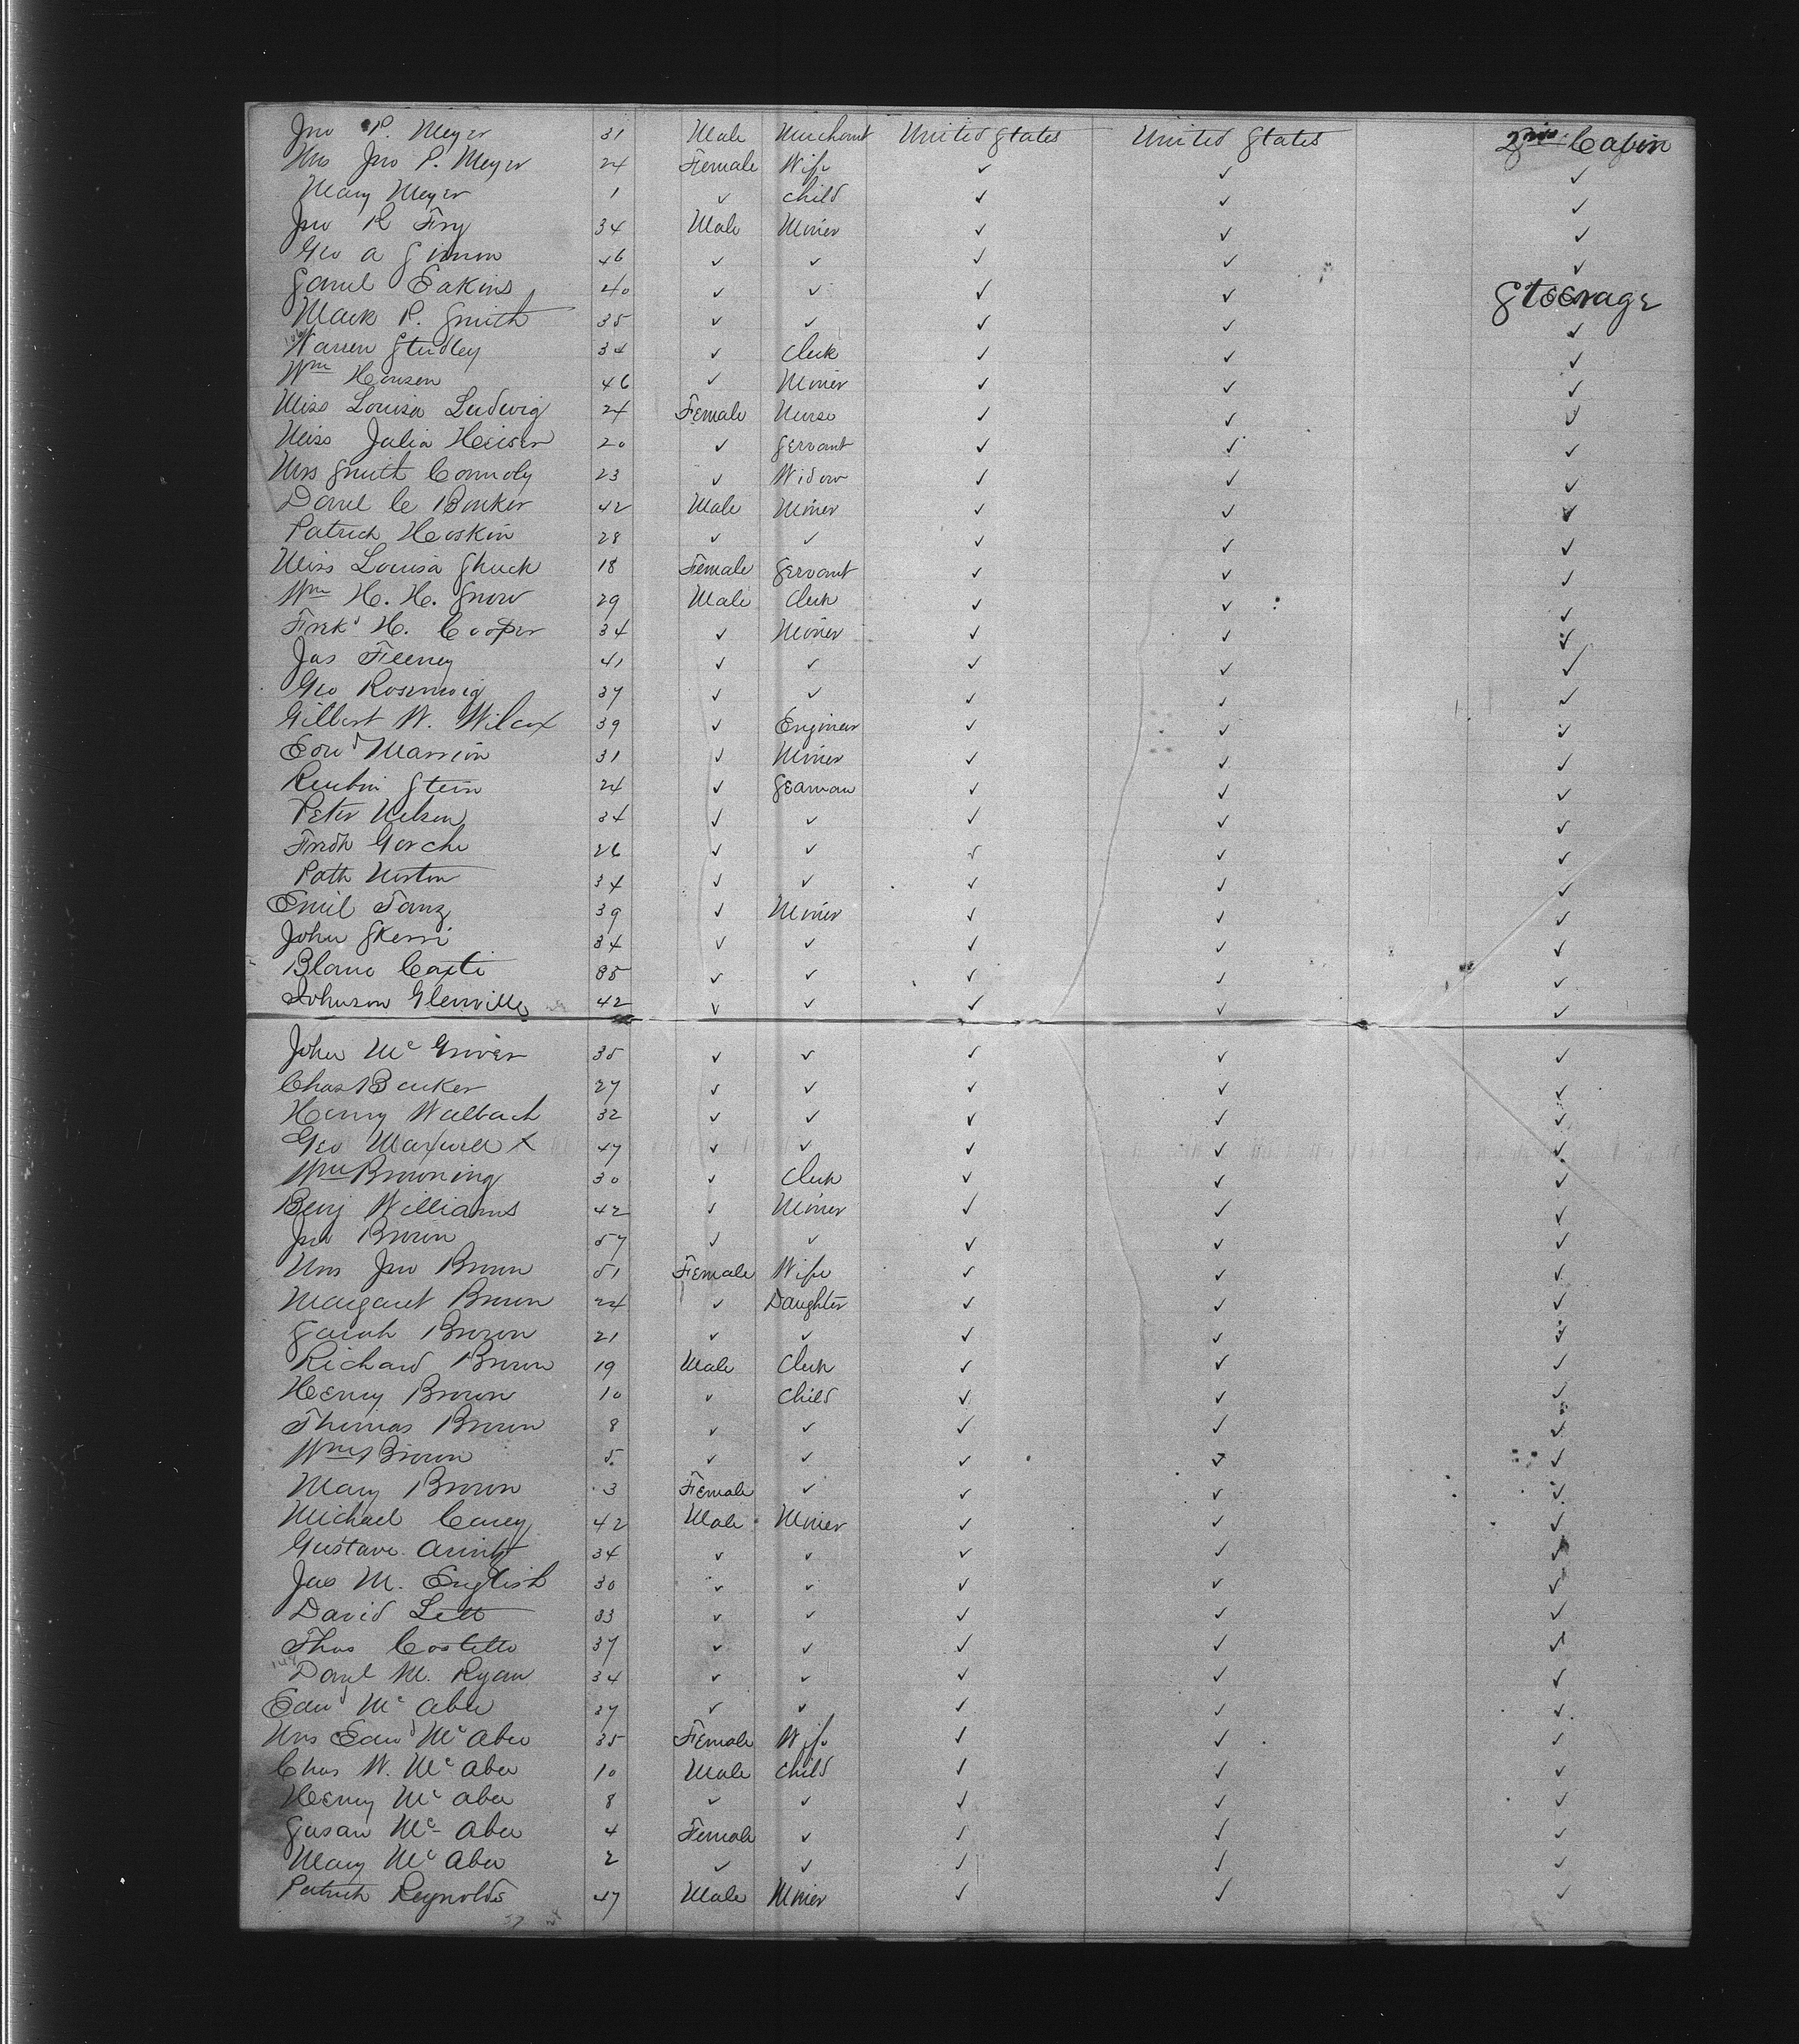 Jno P. Meyer 31 Male Merchant United States United States 2nd Cabin
Mrs Jno P. Meyer 24 Female Wife ✓ ✓ ✓
Mary Meyer 1 ✓ Child ✓ ✓ ✓
Jno R Fry 34 Male Miner ✓ ✓ ✓
Geo A 46 ✓ ✓ ✓ ✓ ✓
Saml Eakins 40 ✓ ✓ ✓ ✓ Steerage
Mark P. Smith 35 ✓ ✓ ✓ ✓ ✓
Warren Studley 34 ✓ Clerk ✓ ✓ ✓
Wm Hansen 46 ✓ Miner ✓ ✓ ✓
Miss Louisa Ludwig 24 Female Nurse ✓ ✓ ✓
Miss Julia Heiser 20 ✓ Servant ✓ ✓ ✓
Mrs Smith Connoly 23 ✓ Widow ✓ ✓ ✓
Danl C Bunker 42 Male Miner ✓ ✓ ✓
Patrick Hoskin 28 ✓ ✓ ✓ ✓ ✓
Miss Louisa Shuck 18 Female Servant ✓ ✓ ✓
Wm H. H. Snow 29 Male Clerk ✓ ✓ ✓
Fredk H. Cooper 34 ✓ Miner ✓ ✓ ✓
Jas Feeney 41 ✓ ✓ ✓ ✓ ✓
Geo Rosenwig 37 ✓ ✓ ✓ ✓ ✓
Gilbert W. Wilcox 39 ✓ Engineer ✓ ✓ ✓
Edwd Marrion 31 ✓ Miner ✓ ✓ ✓
Reubin Stein 24 ✓ Seaman ✓ ✓ ✓
Peter Nelson 34 ✓ ✓ ✓ ✓ ✓
Fredk Gorche 26 ✓ ✓ ✓ ✓ ✓
Patk Norton 34 ✓ ✓ ✓ ✓ ✓
Emil Tanz 39 ✓ Miner ✓ ✓ ✓
John Skerri 34 ✓ ✓ ✓ ✓ ✓
Blanc Caxti 35 ✓ ✓ ✓ ✓ ✓
Johnson Glenville 42 ✓ ✓ ✓ ✓ ✓
John McGriver 35 ✓ ✓ ✓ ✓ ✓
Chas Bauker 27 ✓ ✓ ✓ ✓ ✓
Henry Walbach 32 ✓ ✓ ✓ ✓ ✓
Geo Maxwell X 47 ✓ ✓ ✓ ✓ ✓
Wm Browning 30 ✓ Clerk ✓ ✓ ✓
Benj Williams 42 ✓ Miner ✓ ✓ ✓
Jno Brown 57 ✓ ✓ ✓ ✓ ✓
Mrs Jno Brown 51 Female Wife ✓ ✓ ✓
Margaret Brown 24 ✓ Daughter ✓ ✓ ✓
Sarah Brown 21 ✓ ✓ ✓ ✓ ✓
Richard Brown 19 Male Clerk ✓ ✓ ✓
Henry Brown 10 ✓ Child ✓ ✓ ✓
Thomas Brown 8 ✓ ✓ ✓ ✓ ✓
Wm Brown 5 ✓ ✓ ✓ ✓ ✓
Mary Brown 3 Female ✓ ✓ ✓ ✓
Michael Carey 42 Male Miner ✓ ✓ ✓
Gustave Arindt 34 ✓ ✓ ✓ ✓ ✓
Jas M. English 30 ✓ ✓ ✓ ✓ ✓
David Lett 33 ✓ ✓ ✓ ✓ ✓
Thos Costello 37 ✓ ✓ ✓ ✓ ✓
Danl M. Ryan 34 ✓ ✓ ✓ ✓ ✓
Edwd McAbee 37 ✓ ✓ ✓ ✓ ✓
Mrs Edwd McAbee 35 Female Wife ✓ ✓ ✓
Chas W. McAbee 10 Male Child ✓ ✓ ✓
Henry McAbee 8 ✓ ✓ ✓ ✓ ✓
Susan McAbee 4 Female ✓ ✓ ✓ ✓
Mary McAbee 2 ✓ ✓ ✓ ✓ ✓
Patrick Reynolds 47 Male Miner ✓ ✓ ✓